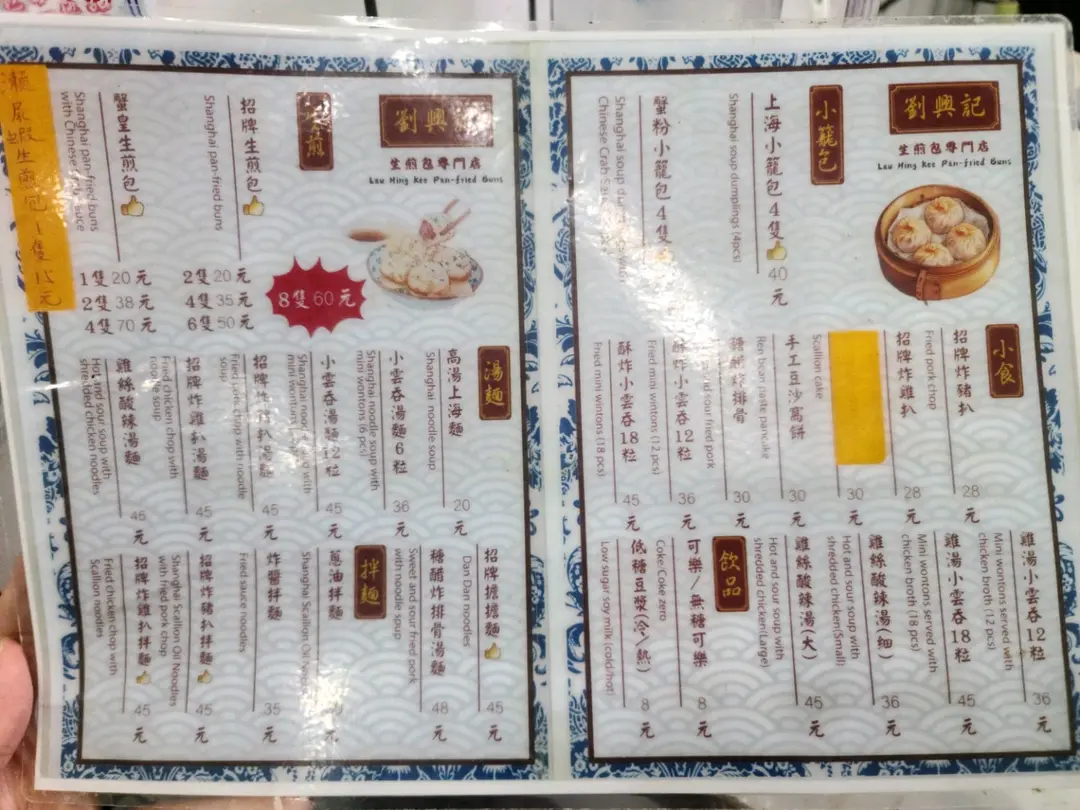 劉興記
生煎包專門店
Lau Hing Kee Pan-fried Buns
小籠包
上海小籠包4隻
Shanghai soup dumplings (4pcs)
40元
蟹粉小籠包4隻
Shanghai soup
Chinese Crab
小食
招牌炸豬扒
Fried pork chop
28元
招牌炸雞扒
28元
Scallion cake
30元
手工豆沙窩餅
Red bean paste pancake
30元
糖醋炸排骨
sour fried pork
30元
酥炸小雲吞12粒
Fried mini wintons (12 pcs)
36元
酥炸小雲吞18粒
Fried mini wintons (18 pcs)
45元
雞湯小雲吞12粒
Mini wontons served with
chicken broth (12 pcs)
36元
雞湯小雲吞18粒
Mini wontons served with
chicken broth (18 pcs)
45元
雞絲酸辣湯(細)
Hot and sour soup with
shredded chicken(Small)
36元
雞絲酸辣湯(大)
Hot and sour soup with
shredded chicken(Large)
45元
飲品
可樂/無糖可樂
Coke/Coke zero
8元
低糖豆漿(冷/熱)
Low sugar soy milk (cold/hot)
8元
劉興
生煎包專門店
Lau Hing Kee Pan-fried Buns
煎
招牌生煎包
Shanghai pan-fried buns
2隻20元
4隻35元
6隻50元
8隻60元
蟹皇生煎包
Shanghai pan-fried buns
with Chinese
1隻20元
2隻38元
4隻70元
瀨尿蝦生煎包1隻15元
湯麵
高湯上海麵
Shanghai noodle soup
20元
小雲吞湯麵6粒
Shanghai noodle soup with
mini wontons (6 pcs)
36元
小雲吞湯麵12粒
Shanghai noodle soup with
mini wontons
45元
招牌炸豬扒湯麵
Fried pork chop with noodle
soup
45元
招牌炸雞扒湯麵
Fried chicken chop with
noodle soup
45元
雞絲酸辣湯麵
Hot and sour soup with
shredded chicken noodles
45元
招牌擔擔麵
Dan Dan noodles
45元
糖醋炸排骨湯麵
Sweet and sour fried pork
with noodle soup
48元
拌麵
蔥油拌麵
Shanghai Scallion Oil
元
炸醬拌麵
Fried sauce noodles
35元
招牌炸豬扒拌麵
Shanghai Scallion Oil Noodles
with fried pork chop
45元
招牌炸雞扒拌麵
Fried chicken chop with
Scallion noodles
45元